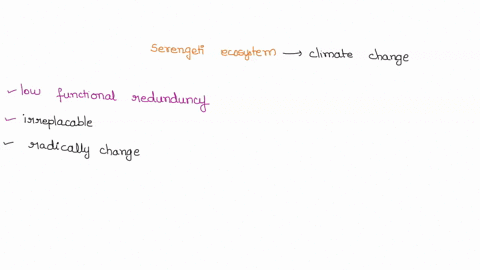 Serengeti ecosystem → climate change
✓ low functional redunduncy
✓ irreplacable
✓ radically change